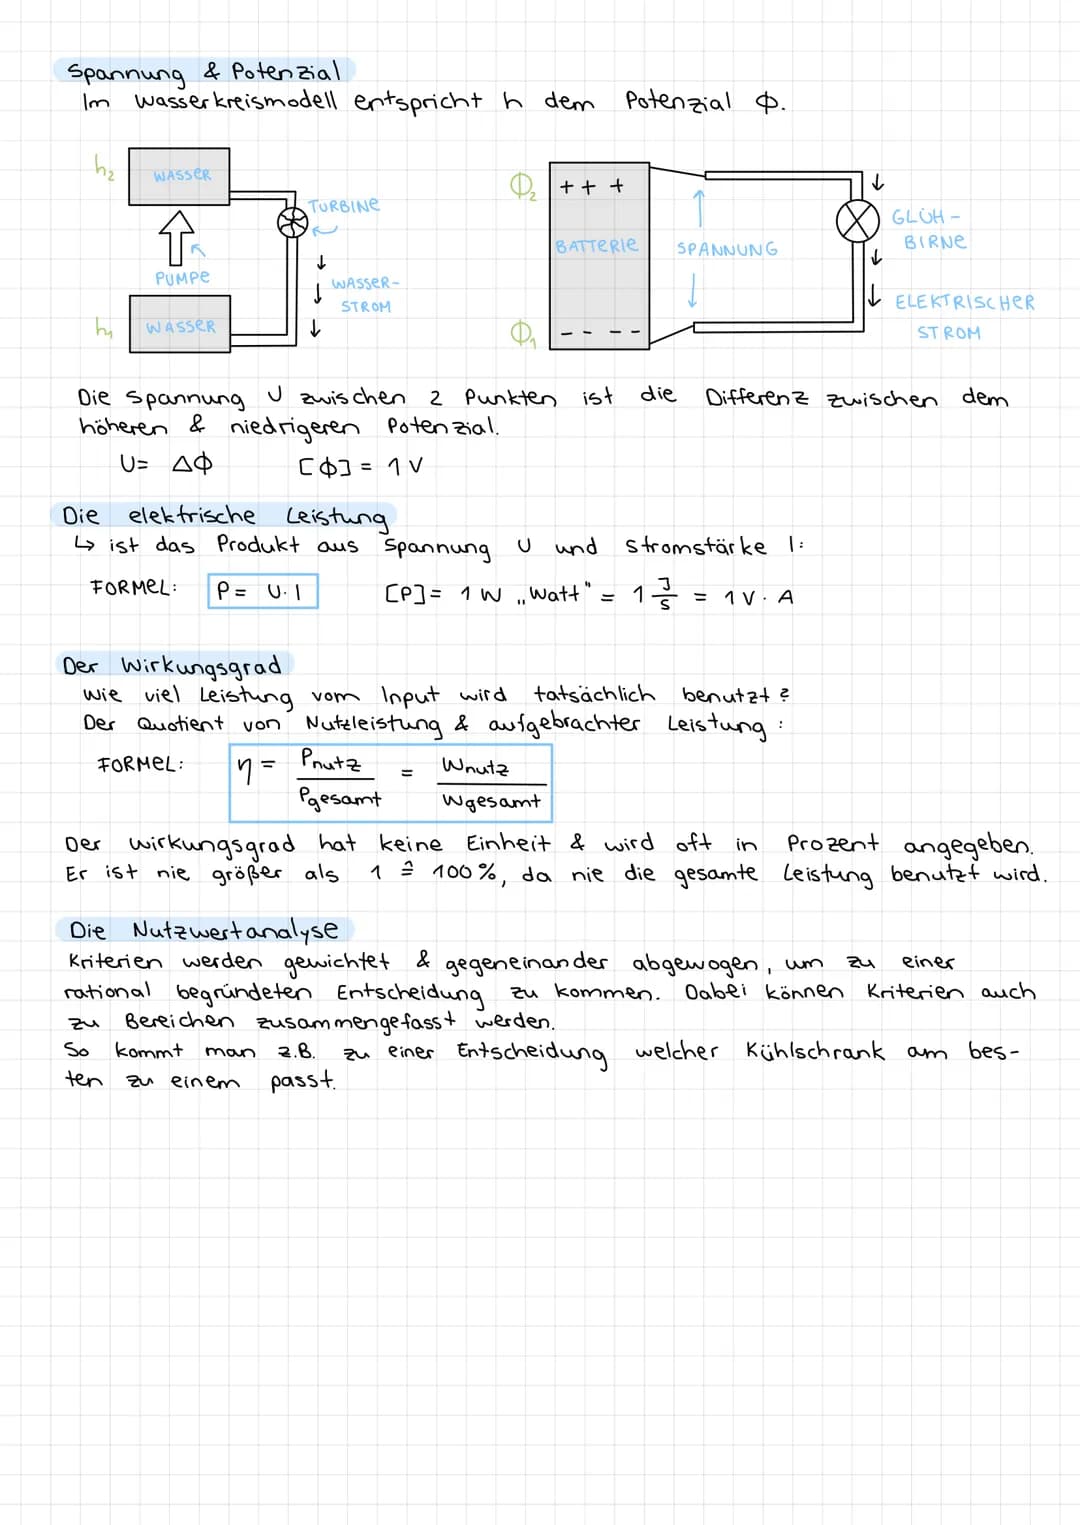 Spannung & Potenzial
Im Wasserkreismodell entspricht h dem Potenzial Φ.
h₂ WASSER
TURBINE
PUMPE
WASSER-
STROM
h₁ WASSER
Φ₂ + + +
BATTERIE
SPANNUNG
GLÜH-
BIRNE
ELEKTRISCHER
STROM
Φ₁ - - - -
Die Spannung U zwischen 2 Punkten ist die Differenz zwischen dem
höheren & niedrigeren Potenzial.
U= ΔΦ [Φ] = 1 V
Die elektrische Leistung
↳ ist das Produkt aus Spannung U und Stromstärke I:
FORMEL: P = U·I [P] = 1 W „Watt" = 1 J/s = 1 V · A
Der Wirkungsgrad
Wie viel Leistung vom Input wird tatsächlich benutzt?
Der Quotient von Nutzleistung & aufgebrachter Leistung:
FORMEL: η = Pnutz/Pgesamt = Wnutz/Wgesamt
Der Wirkungsgrad hat keine Einheit & wird oft in Prozent angegeben.
Er ist nie größer als 1 ≙ 100%, da nie die gesamte Leistung benutzt wird.
Die Nutzwertanalyse
Kriterien werden gewichtet & gegeneinander abgewogen, um zu einer
rational begründeten Entscheidung zu kommen. Dabei können Kriterien auch
zu Bereichen zusammengefasst werden.
So kommt man z.B. zu einer Entscheidung welcher Kühlschrank am bes-
ten zu einem passt.